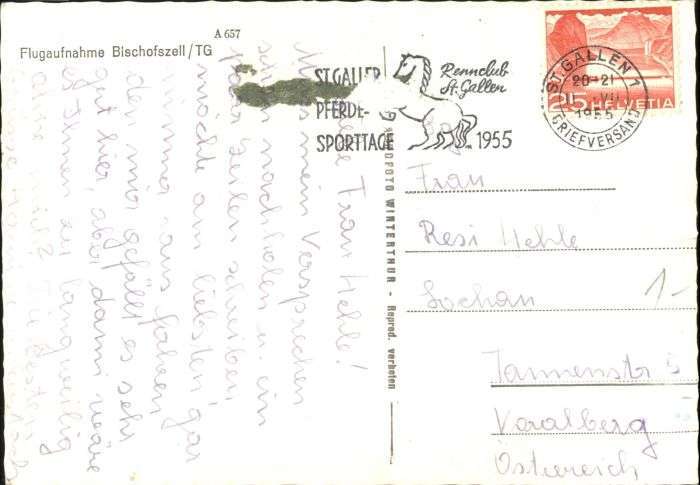 A 657
Flugaufnahme Bischofszell/TG
ST. GALLER
PFERDE-
SPORTTAGE
Rennclub
St. Gallen
1955
ST. GALLEN 1
20-21
VII
1955
BRIEFVERSAND
25 HELVETIA
FOTO WINTERTHUR - Reprod. verboten
Frau Hehle!
Muss mein Versprechen
nachholen u. ein
paar Zeilen schreiben,
möchte am liebsten gar
nimmer raus fahren
den mir gefällt es sehr
gut hier, aber dann wäre
es Ihnen zu langweilig
ohne mich? Die besten
Frau
Resi Hehle
Lochau
Tannenstr 5
Voralberg
Österreich
1-